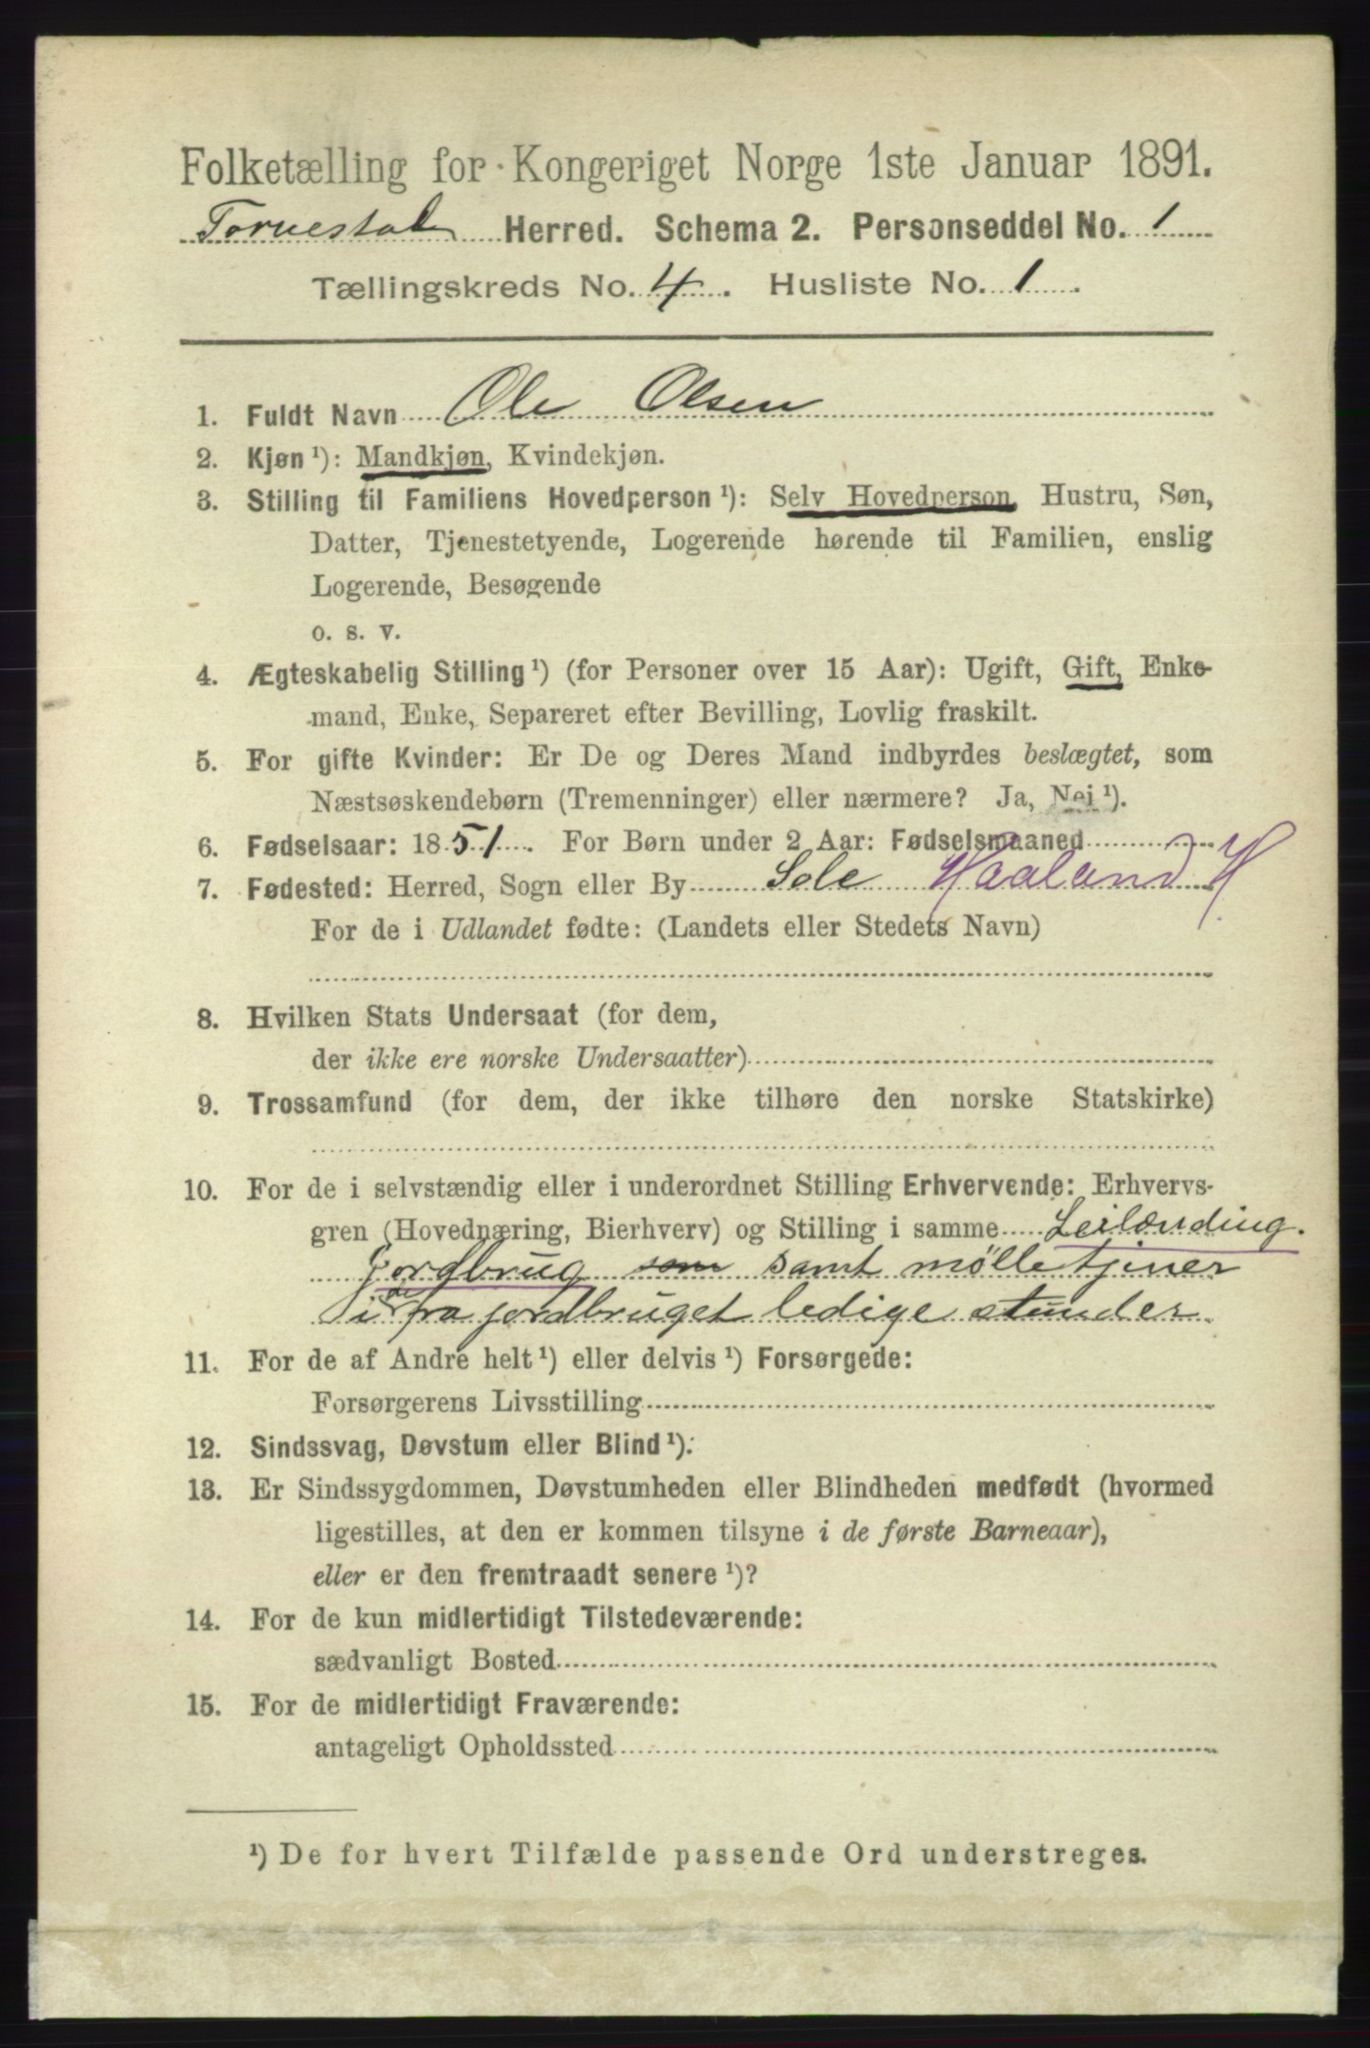 Folketælling for Kongeriget Norge 1ste Januar 1891.
Tornestad Herred. Schema 2. Personseddel No. 1
Tællingskreds No. 4. Husliste No. 1.
1. Fuldt Navn Ole Olsen
2. Kjøn ¹): Mandkjøn, Kvindekjøn.
3. Stilling til Familiens Hovedperson ¹): Selv Hovedperson, Hustru, Søn,
Datter, Tjenestetyende, Logerende hørende til Familien, enslig
Logerende, Besøgende
o. s. v.
4. Ægteskabelig Stilling ¹) (for Personer over 15 Aar): Ugift, Gift, Enke-
mand, Enke, Separeret efter Bevilling, Lovlig fraskilt.
5. For gifte Kvinder: Er De og Deres Mand indbyrdes beslægtet, som
Næstsøskendebørn (Tremenninger) eller nærmere? Ja, Nei ¹).
6. Fødselsaar: 1851. For Børn under 2 Aar: Fødselsmaaned
7. Fødested: Herred, Sogn eller By Sole Haaland H
For de i Udlandet fødte: (Landets eller Stedets Navn)
8. Hvilken Stats Undersaat (for dem,
der ikke ere norske Undersaatter)
9. Trossamfund (for dem, der ikke tilhøre den norske Statskirke)
10. For de i selvstændig eller i underordnet Stilling Erhvervende: Erhvervs-
gren (Hovednæring, Bierhverv) og Stilling i samme Leilænding.
Jordbrug som samt mølletjener
i de fra jordbruget ledige stunder
11. For de af Andre helt ¹) eller delvis ¹) Forsørgede:
Forsørgerens Livsstilling
12. Sindssvag, Døvstum eller Blind ¹).
13. Er Sindssygdommen, Døvstumheden eller Blindheden medfødt (hvormed
ligestilles, at den er kommen tilsyne i de første Barneaar),
eller er den fremtraadt senere ¹)?
14. For de kun midlertidigt Tilstedeværende:
sædvanligt Bosted
15. For de midlertidigt Fraværende:
antageligt Opholdssted
¹) De for hvert Tilfælde passende Ord understreges.